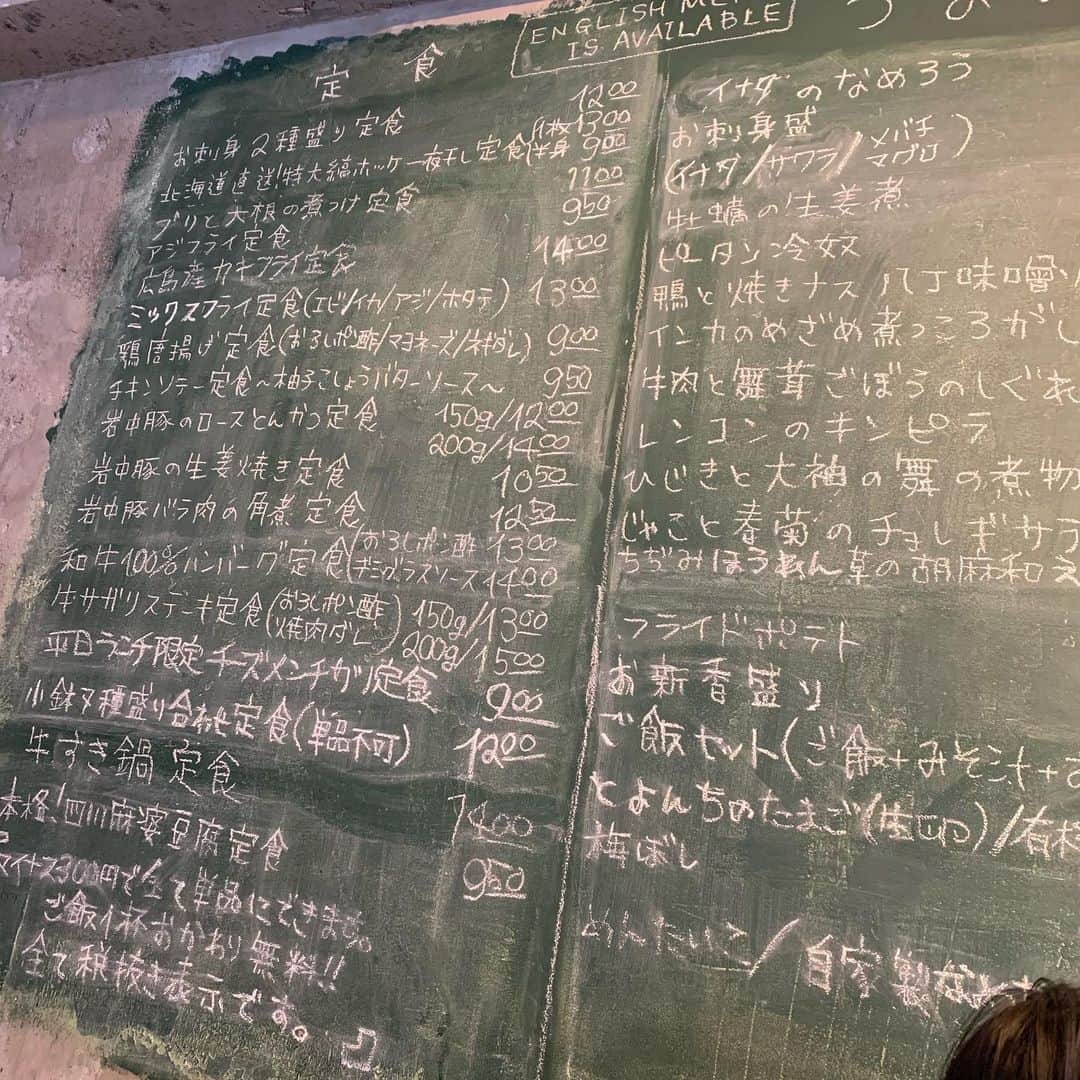 ENGLISH ME
IS AVAILABLE
定食
お刺身2種盛り定食 1200
北海道直送!特大縞ホッケ一夜干し定食(1枚1300
半身 900
ブリと大根の煮つけ定食 1100
アジフライ定食 950
広島産カキフライ定食 1400
ミックスフライ定食(エビ/イカ/アジ/ホタテ) 1300
鶏唐揚げ定食(おろしポン酢/マヨネーズ/ネギダレ) 900
チキンソテー定食〜柚子こしょうバターソース〜 950
岩中豚のロースとんかつ定食 150g/1200
200g/1400
岩中豚の生姜焼き定食 1050
岩中豚バラ肉の角煮定食 1250
和牛100%ハンバーグ定食(おろしポン酢 1300
デミグラスソース 1400
牛サガリステーキ定食(おろしポン酢
焼肉ダレ) 150g/1300
200g/1500
平日ランチ限定チーズメンチカツ定食 900
小鉢7種盛り合わせ定食(単品不可) 1200
牛すき鍋定食 1400
本格!四川麻婆豆腐定食 950
マイナス300円で全て単品にできます。
ご飯1杯おかわり無料!!
全て税抜き表示です。
イナダのなめろう
お刺身盛
(イナダ/サワラ/メバチ
マグロ)
牡蠣の生姜煮
ピータン冷奴
鴨と焼きナス 八丁味噌
インカのめざめ煮っころがし
牛肉と舞茸ごぼうのしぐれ
レンコンのキンピラ
ひじきと大袖の舞の煮物
じゃこと春菊のチョレギサラ
ちぢみほうれん草の胡麻和え
フライドポテト
お新香盛り
ご飯セット(ご飯+みそ汁+
とよんちのたまご(生 )/有
梅ぼし
めんたいこ/自家製な